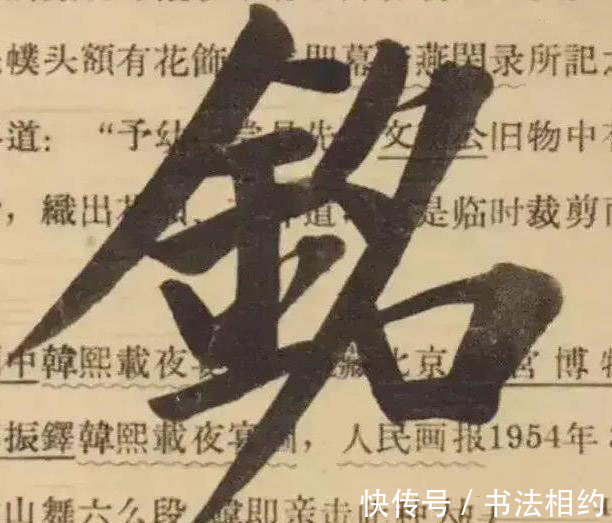 銘
幞头額有花飾 即幕 燕閑录所記
道：“予幼 先 文 公旧物中
，織出花 道 是临时裁剪
中韓熙載夜宴 藏北京 宮博物
振鐸韓熙載夜宴圖，人民画报1954年
山舞六么段，
快传号 / 书法相约